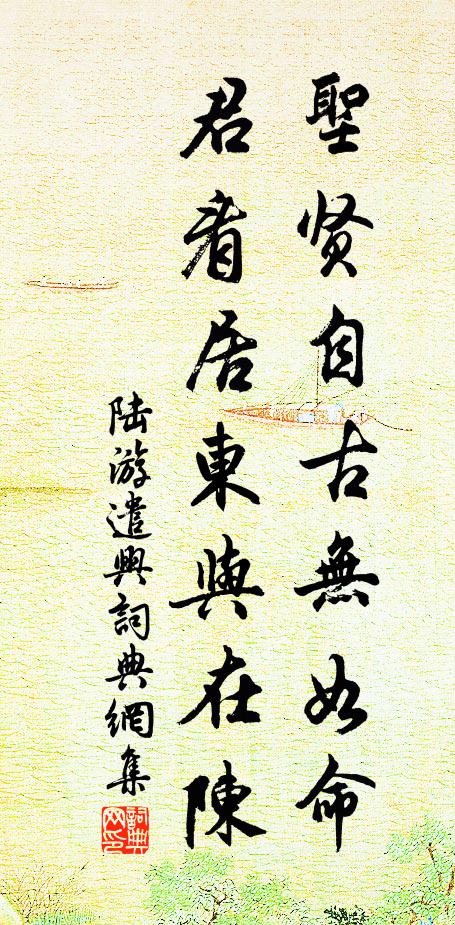 聖贤自古無如命
君看居東與在陳
陆游遣興詞典網集
詞典网印